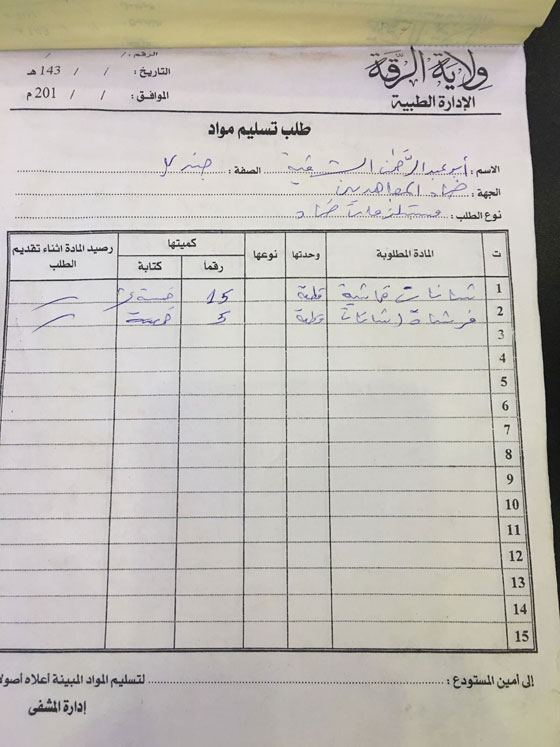 ولاية الرقة
الإدارة الطبية
الرقم: / /
التاريخ: / / 143 هـ
الموافق: / / 201 م
طلب تسليم مواد
الاسم: أبو عبد الرحمن الصفة:
الجهة:
نوع الطلب: مستلزمات ضماد
ت المادة المطلوبة وحدتها نوعها كميتها رصيد المادة اثناء تقديم الطلب
رقما كتابة
1 شانات قماشية قطعة 15
2 قطعة 5 خمسة
3
4
5
6
7
8
9
10
11
12
13
14
15
إلى أمين المستودع: لتسليم المواد المبينة أعلاه
إدارة المشفى